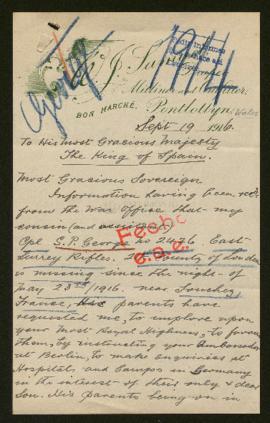 1914
George
J. Sur
Draper
Milliner and Outfitter.
BON MARCHÉ, Pontlottyn, Wales
Sept 19 1916.
To His most Gracious Majesty
The King of Spain.
Most Gracious Sovereign
Information having been rec'd
from the War Office that my
cousin (and
Fecho
e.s.e.
Cpl S. P. George no 2476 East
Surrey Rifles. County of London
is missing since the night of
May 23rd/1916. near Souchez
France, His parents have
requested me, to implore upon
your Most Royal Highness, to favour
them, by instructing your Ambassador
at Berlin, to make enquiries at
Hospitals and Camps in Germany
in the interest of their only & dear
Son. His parents being on in